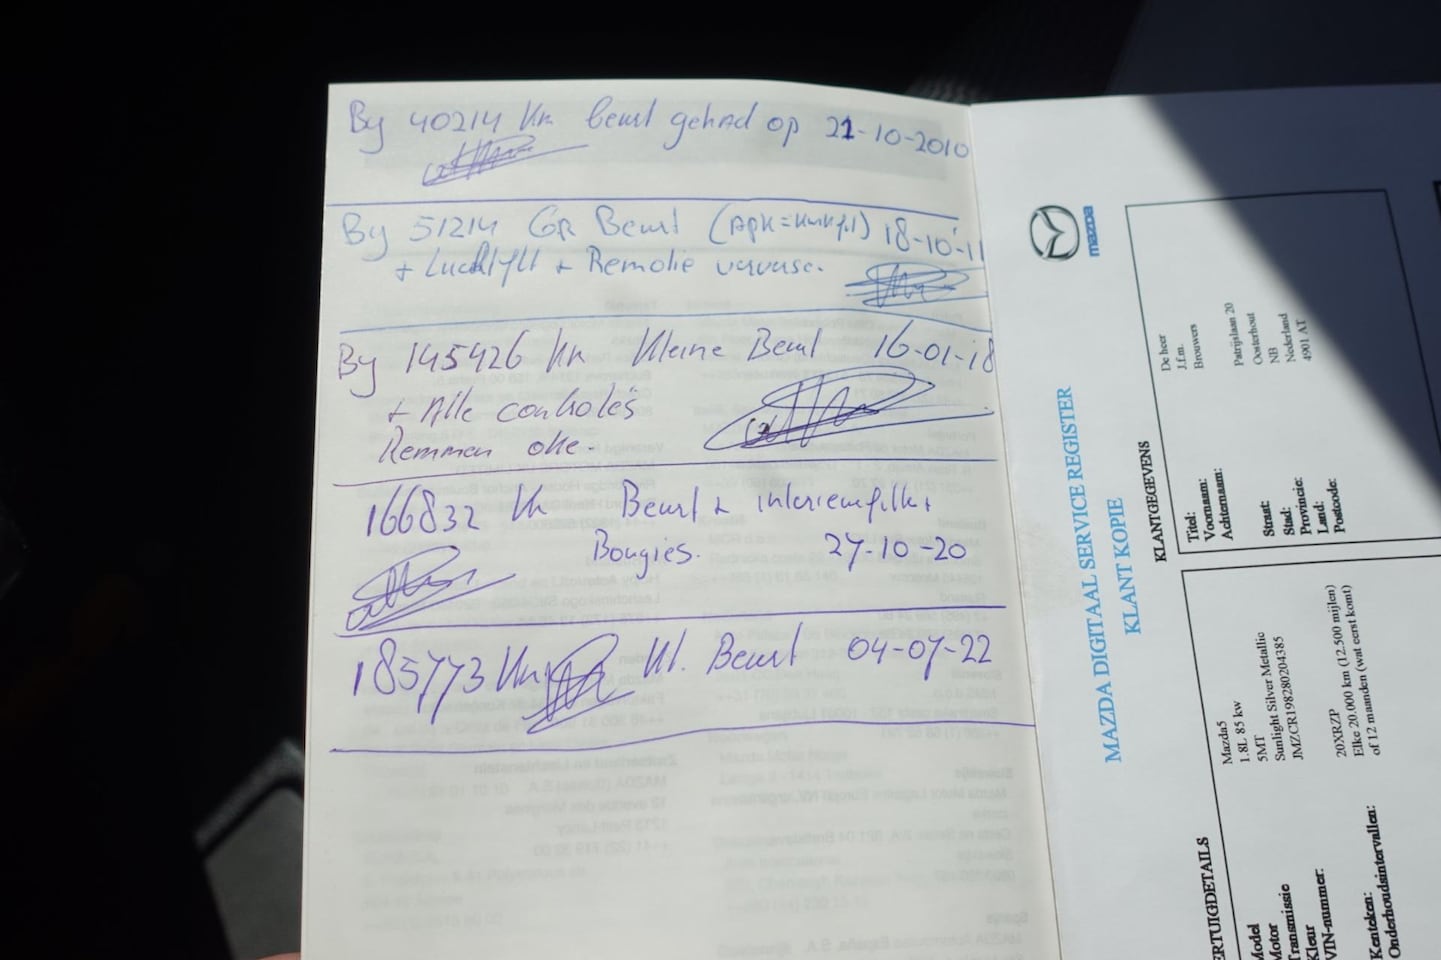 By 40214 Km beurt gehad op 21-10-2010
By 51214 GR Beurt (APK= ) 18-10-11
+ Luchtfilt + Remolie ververse.
By 145426 Km Kleine Beurt 16-01-18
+ Alle controle's
Remmen oke.
166832 Km Beurt + interieurfilter
Bougies. 27-10-20
185773 Km Kl. Beurt 04-07-22
mazda
MAZDA DIGITAAL SERVICE REGISTER
KLANT KOPIE
KLANTGEGEVENS
Titel: De heer
Voornaam: J.f.m.
Achternaam: Brouwers
Straat: Patrijslaan 20
Stad: Oosterhout
Provincie: NB
Land: Nederland
Postcode: 4901 AT
ERTUIGDETAILS
Model Mazda5
Motor 1.8L 85 kw
Transmissie 5MT
Kleur Sunlight Silver Metallic
VIN-nummer: JMZCR198280204385
Kenteken: 20XRZP
Onderhoudsintervallen: Elke 20.000 km (12.500 mijlen)
of 12 maanden (wat eerst komt)